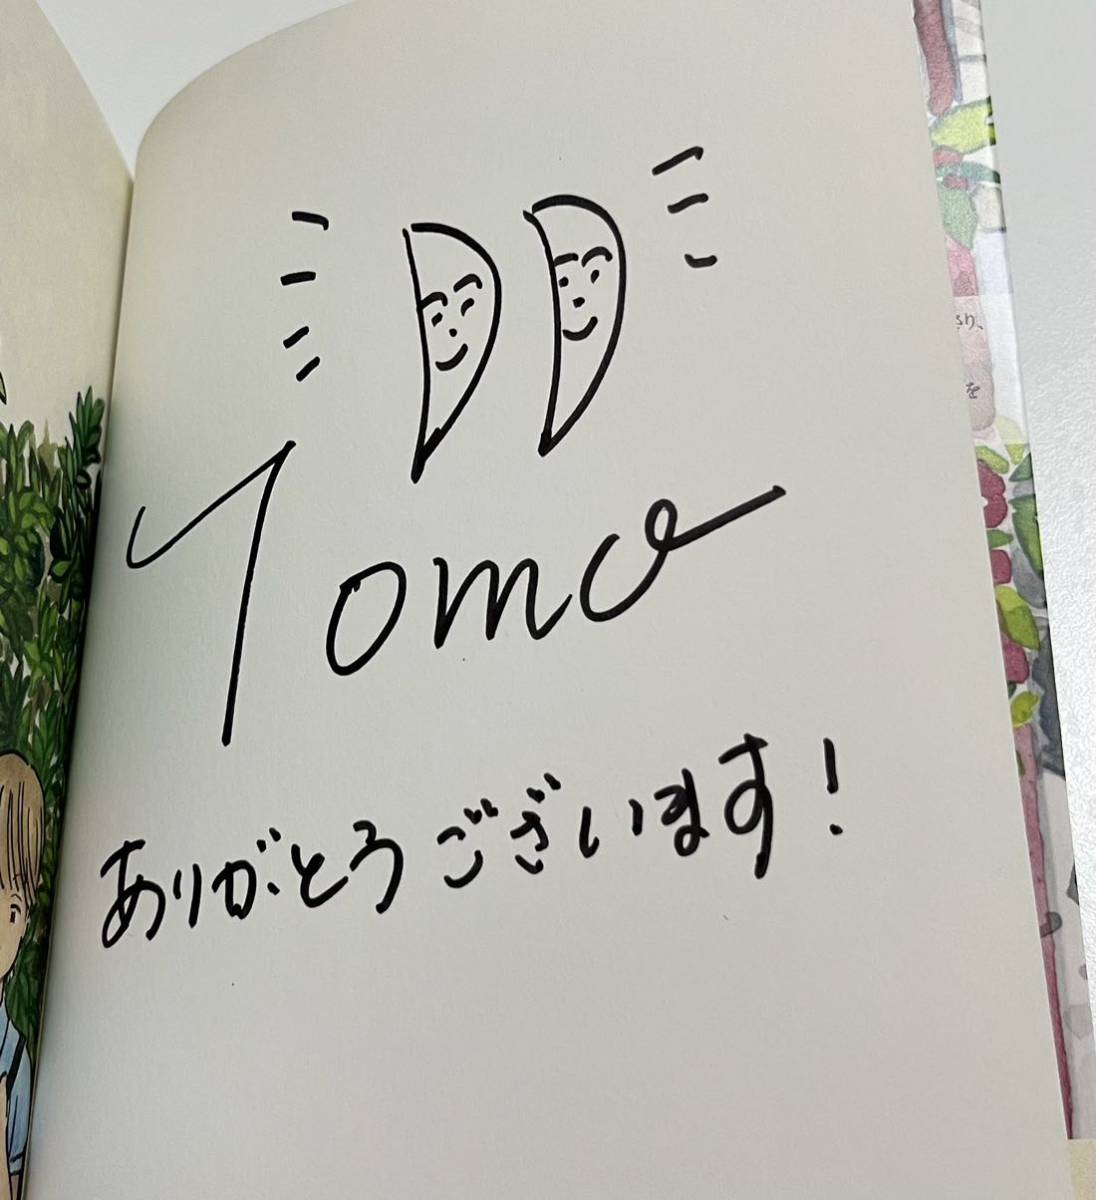 Tomo
ありがとうございます!
り、
を